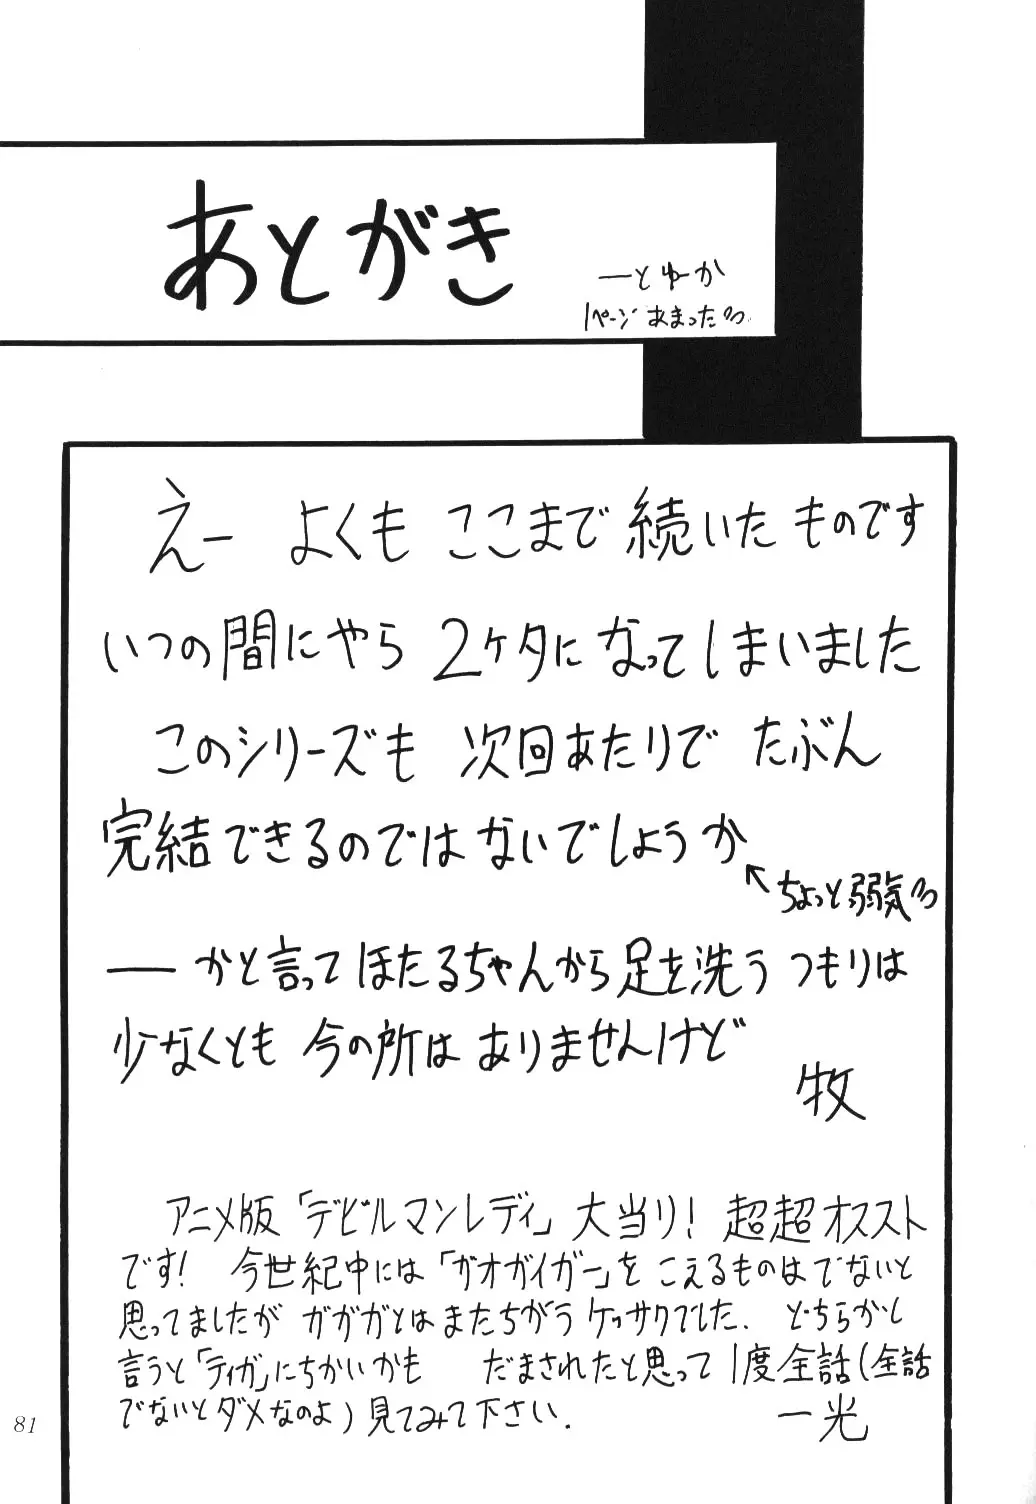 あとがき
ーとゆーか
1ページあまったの
えー よくも ここまで 続いた ものです
いつの間にやら 2ケタに なってしまいました
このシリーズも 次回あたりで たぶん
完結できるのでは ないでしょうか
←ちょっと弱気
── かと言って ほたるちゃんから 足を洗う つもりは
少なくとも 今の所は ありませんけど
牧
アニメ版「デビルマンレディ」大当り! 超超オススト
です! 今世紀中には「ガオガイガー」を こえるものはでないと
思ってましたが ガガガとはまたちがう ケッサクでした. どちらかし
言うと「ティガ」にちかいかも だまされたと思って 1度全話(全話
でないとダメなのよ)見てみて下さい.
一光
81